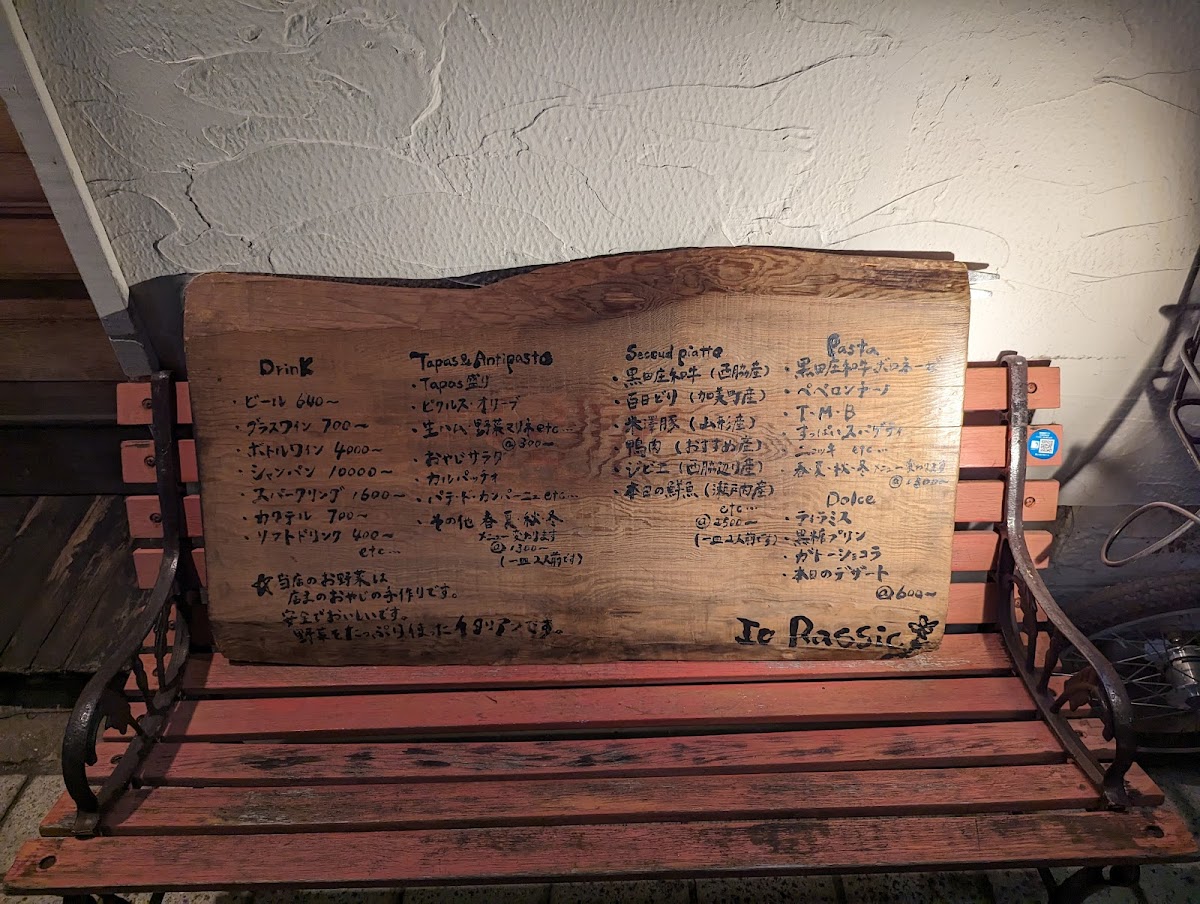 Drink
・ビール 640〜
・グラスワイン 700〜
・ボトルワイン 4000〜
・シャンパン 10000〜
・スパークリング 1600〜
・カクテル 700〜
・ソフトドリンク 400〜
etc…
☆当店のお野菜は
店主のおやじの手作りです。
安全でおいしいです。
野菜をたっぷり使ったイタリアンです。
Tapas&Antipasto
・Tapas盛り
・ピクルス・オリーブ
・生ハム、野菜マリネ etc…
@300〜
・おやじサラダ
・カルパッチィ
・パテ・ド・カンパーニュ etc…
・その他 春夏秋冬
メニュー変わります
@1300〜
(一皿2人前です)
Second piatto
・黒田庄和牛(西脇産)
・百日どり(加美町産)
・米澤豚(山形産)
・鴨肉(おすすめ産)
・ジビエ(西脇辺り産)
・本日の鮮魚(瀬戸内産)
etc…
@2500〜
(一皿2人前です)
Pasta
・黒田庄和牛ボロネーゼ
・ペペロンチーノ
・T・M・B
すっぱいスパゲティ
ニョッキ etc…
春夏秋冬メニュー変わります
Dolce
・ティラミス
・黒糖プリン
・ガトーショコラ
・本日のデザート
@600〜
Io Rassic